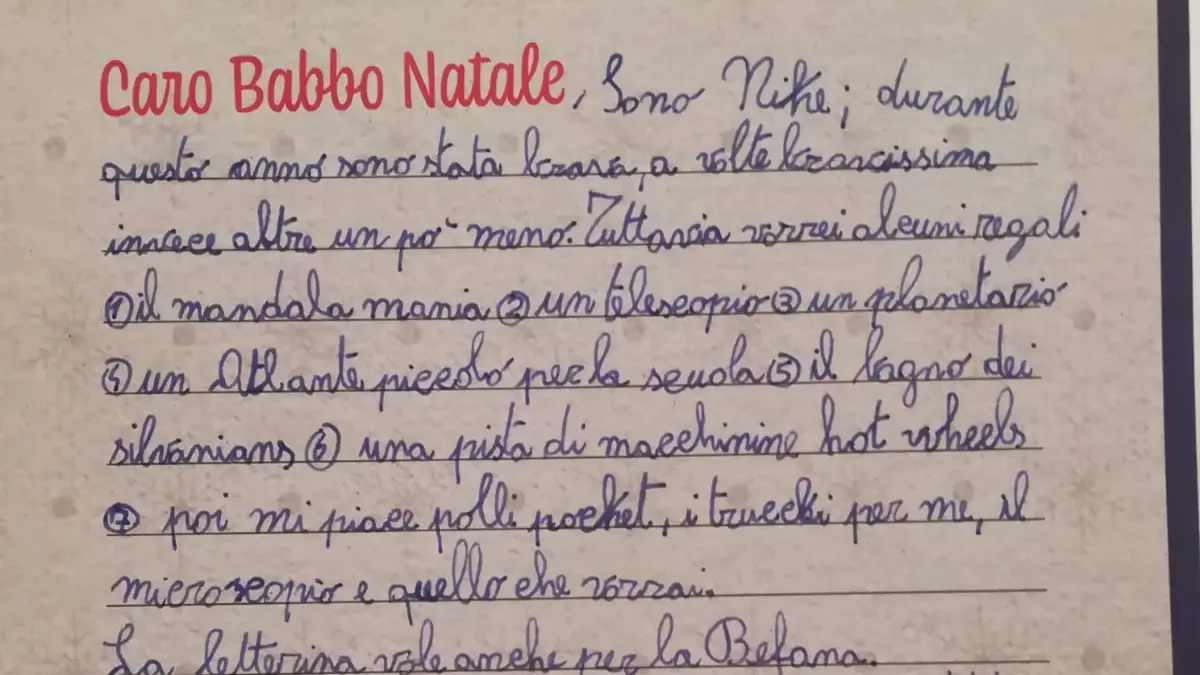 Caro Babbo Natale, Sono Nike; durante
questo anno sono stata brava, a volte bravissima
invece altre un po' meno. Tuttavia vorrei alcuni regali
①il mandala mania ② un telescopio ③ un planetario
④ un Atlante piccolo per la scuola ⑤ il bagno dei
silvanians ⑥ una pista di macchinine hot wheels
⑦ poi mi piace polli pocket, i trucchi per me, il
microscopio e quello che vorrai.
La letterina vale anche per la Befana.